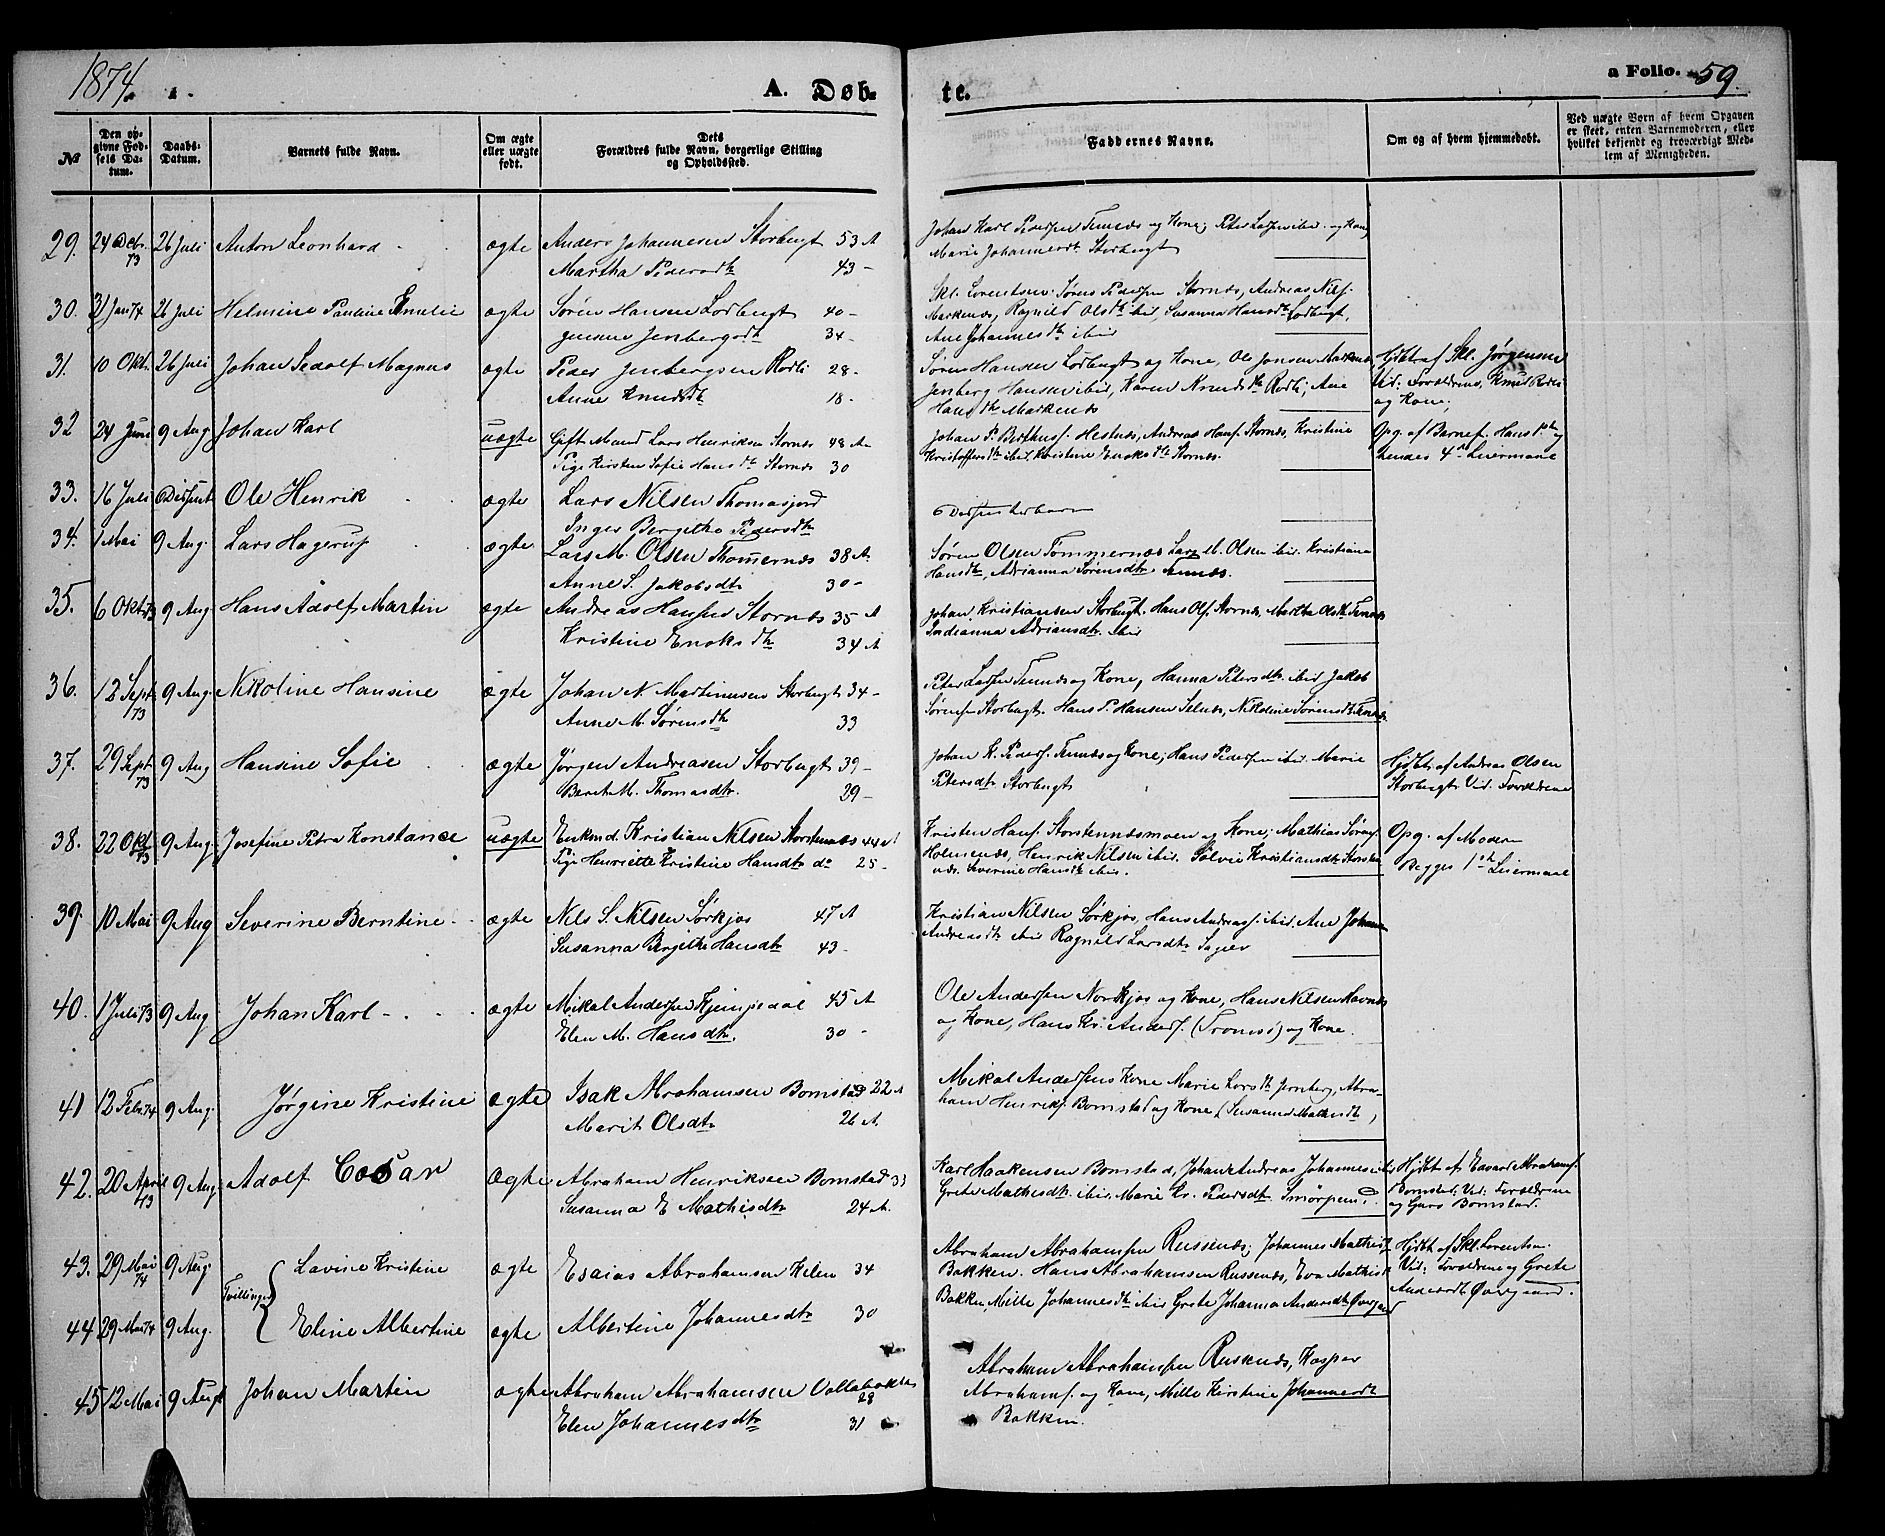 1874.
A. Døb-
te.
a Folio. 59.
№
Den op-
givne Fød-
sels Da-
tum.
Daabs-
Datum.
Barnets fulde Navn.
Om ægte
eller uægte
født.
Dets
Forældres fulde Navn, borgerlige Stilling
og Opholdssted.
Faddernes Navne.
Om og af hvem hjemmedøbt.
Ved uægte Børn af hvem Opgaven
er skeet, enten Barnemoderen, eller
hvilket bekjendt og troværdigt Med-
lem af Menigheden.
29. 24 Debr. 73 26 Juli Anton Leonhard ægte Anders Johannesen Storbugt 53 A
Martha Pedersdtr 43 -
Johan Karl Pedersen Temnæs og Kone; Peter Larsen ibid. og Kone
Marie Johannesdtr Storbugt
30. 31 Jan 74 26 Juli Helmine Pauline Emelie ægte Søren Hansen Lodbugt 40 -
Jensine Jenbergsdtr 34 -
Skl. Lorentsen, Søren Pedersen Stornæs, Andreas Nils.
Markenæs, Ragnild Olsdtr ibid, Susanna Hansdtr Lodbugt,
Ane Johannesdtr ibid
31. 10 Okt. 26 Juli Johan Sedolf Magnus ægte Peder Jenbergsen Rodli 28 -
Anne Knudsdtr 18 -
Søren Hansen Lodbugt og Kone, Ole Jonsen Markenæs
Jenberg Hansen ibid, Karen Knudsdtr Rodli, Ane
Hansdtr Markenæs
Hjdbt af Skl. Jørgensen
Vid: Forældrene, Knud Rodli
og Kone;
32 24 Juni 9 Aug Johan Karl uægte Gift Mand Lars Henriksen Stornæs 48 A
Pige Kirsten Sofie Hansdtr Stornæs 30
Johan P. Berthus. Hestnæs, Andreas Hans. Stornæs, Kristine
Kristoffersdtr ibid, Kristine Enoksdtr Stornæs.
Opg. af Barnef. Hans 1ste og
hendes 4de Leiermaal
33. 16 Juli Ole Henrik ægte Lars Nilsen Thomasjord
Inger Bergitha Pedersdtr
34. 1 Mai 9 Aug. Lars Hagerup ægte Lars M. Olsen Thomernæs 38 A.
Anne S. Jakobsdtr 30 -
Søren Olsen Tommernæs Lars M. Olsen ibid. Kristiana
Hansdtr, Adrianna Sørensdtr Temnæs.
35. 6 Okt 73 9 Aug Hans Adolf Martin ægte Andreas Hansen Stornæs 35 A
Kristine Enoksdtr 34 A
Johan Kristiansen Storbugt. Hans Ols. Stornæs, Martha Olsdtr Temnæs
Indianna Adriansdtr ibid
36. 12 Sept 73 9 Aug. Nikoline Hansine ægte Johan N. Martinusen Storbugt 34 -
Anne M. Sørensdtr 33
Peter Larsen Temnæs og Kone, Hanna Petersdtr ibid Jakob
Sørensen Storbugt. Hans P. Hansen Selnæs, Nikoline Sørensdtr Temnæs
37. 29 Sept. 73 9 Aug Hansine Sofie ægte Jørgen Andreasen Storbugt 39 -
Berit M. Thomasdtr. 29 -
Johan K. Peders. Temnæs og Kone, Hans Pedersen ibid. Marie
Petersdtr Storbugt
Hjdbt af Andreas Olsen
Storbugt Vid. Forældrene
38. 22 Okt 73 9 Aug. Josefine Petra Konstance uægte Enkmd. Kristian Nilsen Storstennæs 44 A
Pige Henriette Kristine Hansdtr do 25 -
Kristen Hans. Storstennæsmoen og Kone; Mathias Sørens.
Holmenæs, Henrik Nilsen ibid. Sølvie Kristiansdtr Storsten
næs. Severine Hansdtr ibid.
Opg. af Modern
Begges 1ste Leiermaal
39. 10 Mai 9 Aug Severine Berntine ægte Nils S. Nilsen Sørkjos 47 A
Susanna Birgithe Hansdtr 43 -
Kristian Nilsen Sørkjos, Hans Andreas. ibid. Ane Johanna
Andreasdtr ibid Ragnild Larsdtr
40. 1 Juli 73 9 Aug. Johan Karl ægte Mikal Andersen 45 A
Elen M. Hansdtr. 30 -
Ole Andersen Nordkjos og Kone, Hans Nilsen Havnæs
og Kone, Hans Kr. Anders. (Tromsø) og Kone.
41 12 Febr 74 9 Aug. Jørgine Kristine ægte Isak Abrahamsen Bomstad 22 A
Marit Olsdtr 26 A.
Mikal Andersens Kone Marie Larsdtr Jernberg, Abra-
ham Henriks. Bomstad og Kone (Susanna Mathisdtr)
42. 20 April 73 9 Aug. Adolf Cesar Ægte Abraham Henriksen Bomstad 33
Susanna E Mathisdtr 24 A.
Karl Haakensen Bomstad, Johan Andreas Johannes. ibid
Grete Mathisdtr. ibid, Marie Kr. Pedersdtr
Hjdbt af Edvard Abrahams.
Bomstad. Vid: Forældrene
og Guro Bomstad.
43. 29 Mai 74 9 Aug. Tvillinger { Lavine Kristine ægte Esaias Abrahamsen Kilen 34
Abraham Abrahamsen Russenæs, Johannes Mathis.
Bakken. Hans Abrahamsen Russenæs, Eva Mathisdtr
Bakken, Mille Johannesdtr ibid Grete Johanna Andersdtr Øvergaard
Hjdbt af Skl. Lorentsen.
Vid: Forældrene og Grete
Andersdtr Øvergaard.
44 29 Mai 74 9 Aug. Eline Albertine ægte Albertine Johannesdtr 30
45 12 Mai 9 Aug Johan Martin ægte Abraham Abrahamsen 28
Elen Johannesdtr 31
Abraham Abrahamsen Russenæs, Kasper
Abrahams. og Kone, Mille Kirstine Johannesdtr
Bakken.